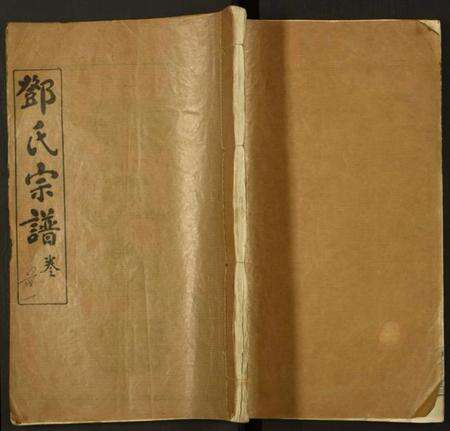 鄧氏宗譜
卷首一